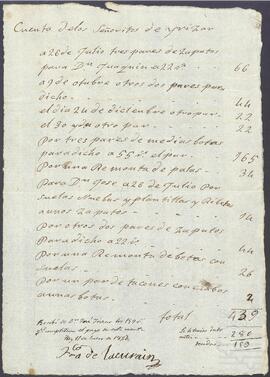 Cuenta delos Señoritos de Yrizar
a 28 de Julio tres pares de zapatos
para Dn Juaquin a 22 rs 66
a 9 de otubre otros dos pares para
dicho 44
el dia 24 de diciembre otro par 22
el 30 ydm otro par 22
Por tres pares de medias botas
para dicho a 55 rs el par 165
Por una Remonta de palas 34
Para Dn Jose a 28 de Julio Por
suelas Nuebas y plantillas y
aunos zapatos 14
Por otros dos pares de zapatos
Para dicho a 22 rs 44
Por una Remonta de botas con
suelas 26
Por un par de tacones con
aunas botas 2
total 439
Recibi de Dn
el pago de esta cuenta
280
159
Fra de